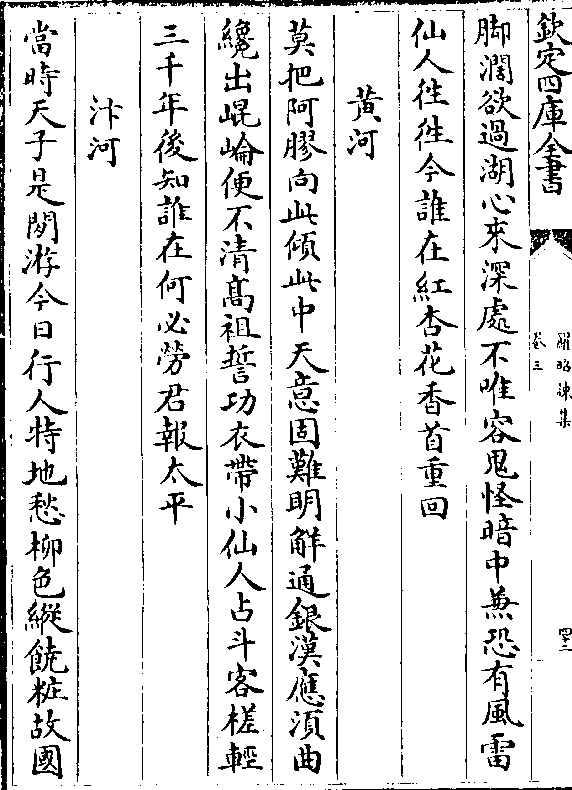 欽定四庫全書
羅昭諫集
卷三
四三
脚濶欲過湖心來深處不唯容鬼怪暗中兼恐有風雷
仙人徃徃今誰在紅杏花香首重回
黄河
莫把阿膠向此傾此中天意固難明解通銀漢應湏曲
纔出崐崘便不清髙祖誓功衣帶小仙人占斗客槎輕
三千年後知誰在何必勞君報太平
汴河
當時天子是閒游今日行人特地愁柳色縱饒粧故國